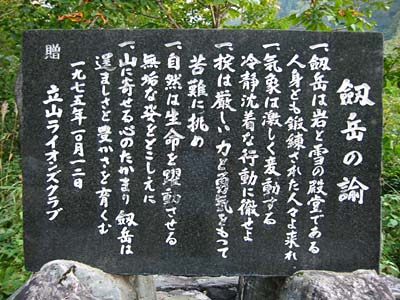 劔岳の諭
一、劔岳は岩と雪の殿堂である
人身とも鍛錬された人々よ来れ
一、気象は激しく変動する
冷静沈着な行動に徹せよ
一、掟は厳しい力と勇氣をもって
苦難に挑め
一、自然は生命を躍動させる
無垢な姿をとこしえに
一、山に寄せる心のたかまり 劔岳は
逞ましさと豊かさと育くむ
贈
一九七五年一〇月一二日
立山ライオンズクラブ